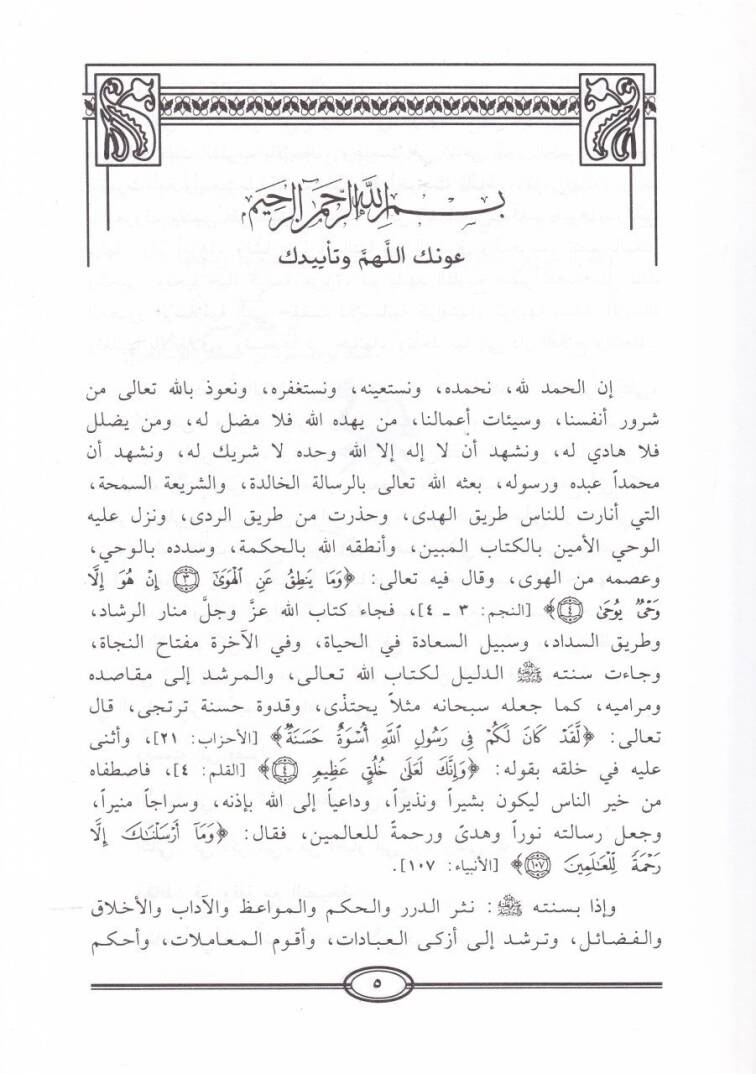 بسم الله الرحمن الرحيم
عونك اللَّهمَّ وتأييدك
إن الحمد لله، نحمده، ونستعينه، ونستغفره، ونعوذ بالله تعالى من
شرور أنفسنا، وسيئات أعمالنا، من يهده الله فلا مضل له، ومن يضلل
فلا هادي له، ونشهد أن لا إله إلا الله وحده لا شريك له، ونشهد أن
محمداً عبده ورسوله، بعثه الله تعالى بالرسالة الخالدة، والشريعة السمحة،
التي أنارت للناس طريق الهدى، وحذرت من طريق الردى، ونزل عليه
الوحي الأمين بالكتاب المبين، وأنطقه الله بالحكمة، وسدده بالوحي،
وعصمه من الهوى، وقال فيه تعالى: ﴿وَمَا يَنطِقُ عَنِ ٱلْهَوَىٰٓ ٣ إِنْ هُوَ إِلَّا
وَحْىٌ يُوحَىٰ ٤﴾ [النجم: ٣ ـ ٤]، فجاء كتاب الله عزَّ وجلَّ منار الرشاد،
وطريق السداد، وسبيل السعادة في الحياة، وفي الآخرة مفتاح النجاة،
وجاءت سنته ﷺ الدليل لكتاب الله تعالى، والمرشد إلى مقاصده
ومراميه، كما جعله سبحانه مثلاً يحتذى، وقدوة حسنة ترتجى، قال
تعالى: ﴿لَّقَدْ كَانَ لَكُمْ فِى رَسُولِ ٱللَّهِ أُسْوَةٌ حَسَنَةٌ﴾ [الأحزاب: ٢١]، وأثنى
عليه في خلقه بقوله: ﴿وَإِنَّكَ لَعَلَىٰ خُلُقٍ عَظِيمٍ ٤﴾ [القلم: ٤]، فاصطفاه
من خير الناس ليكون بشيراً ونذيراً، وداعياً إلى الله بإذنه، وسراجاً منيراً،
وجعل رسالته نوراً وهدىً ورحمةً للعالمين، فقال: ﴿وَمَآ أَرْسَلْنَٰكَ إِلَّا
رَحْمَةً لِّلْعَٰلَمِينَ ١٠٧﴾ [الأنبياء: ١٠٧].
وإذا بسنته ﷺ: نثر الدرر والحكم والمواعظ والآداب والأخلاق
والفضائل، وترشد إلى أزكى العبادات، وأقوم المعاملات، وأحكم
٥